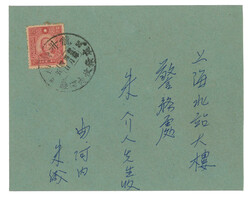 上海北站大樓
警務處
朱介人先生收
由河内
朱緘